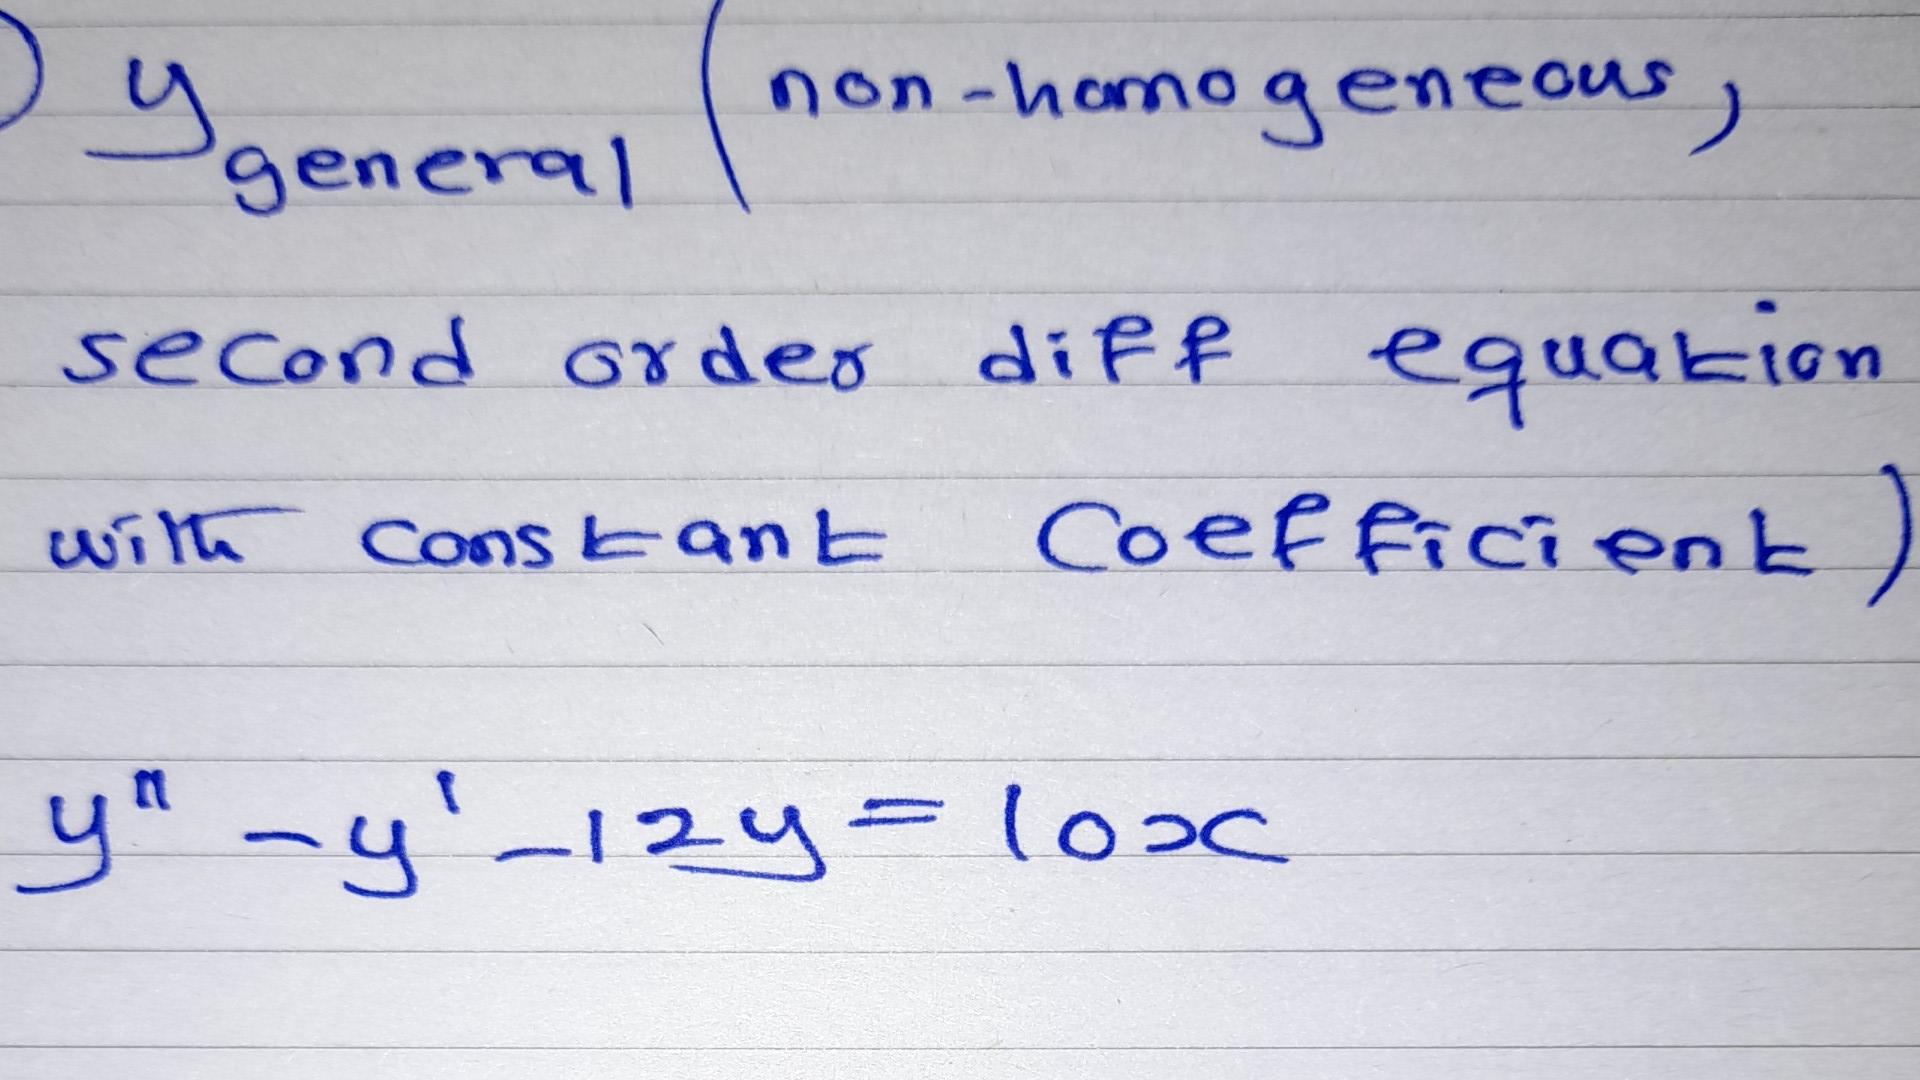 ) y general (non-homogeneous,
second order diff equation
with constant Coefficient)
y" - y' - 12y = 10x